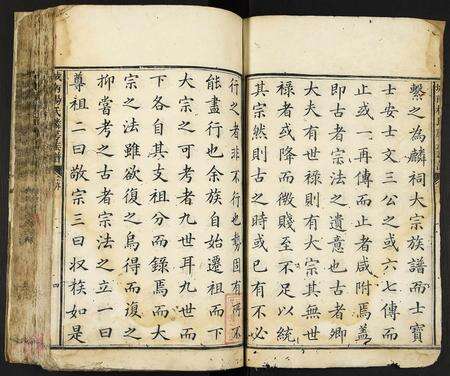 繫之為麟祠大宗族譜而士寶
士安士文三公之或六七傳而
止或一再傳而止者咸附焉蓋
即古者宗法之遺意也古者卿
大夫有世祿則有大宗其無世
祿者或降而微賤至不足以統
其宗然則古之時或已有不必
行之者非不行也勢固有所不
能盡行也余族自始遷祖而下
大宗之可考者九世耳九世而
下各自其支祖分而錄焉而大
宗之法雖欲復之烏得而復之
抑嘗考之古者宗法之立一曰
尊祖二曰敬宗三曰収族如是
四